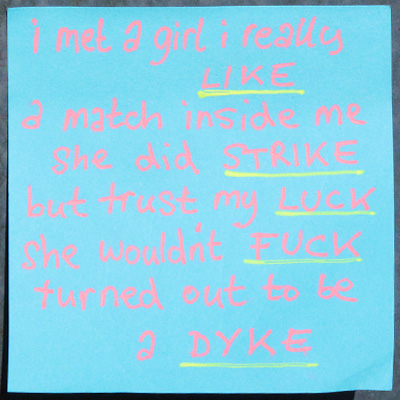 i met a girl i really
LIKE
a match inside me
she did STRIKE
but trust my LUCK
she wouldn't FUCK
turned out to be
a DYKE